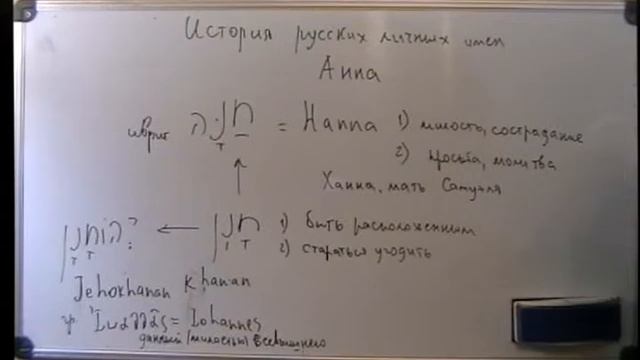 История русских личных имен
Анна
иврит חַנָּה = Hanna 1) милость, сострадание
2) просьба, молитва
Ханна, мать Самуила
יְהוֹחָנָן ← חָנַן 1) быть расположенным
2) стараться угодить
Jehokhanan Khanan
гр. Ἰωάννᾱς = Iohannes
данный (милостью) Всевышнего